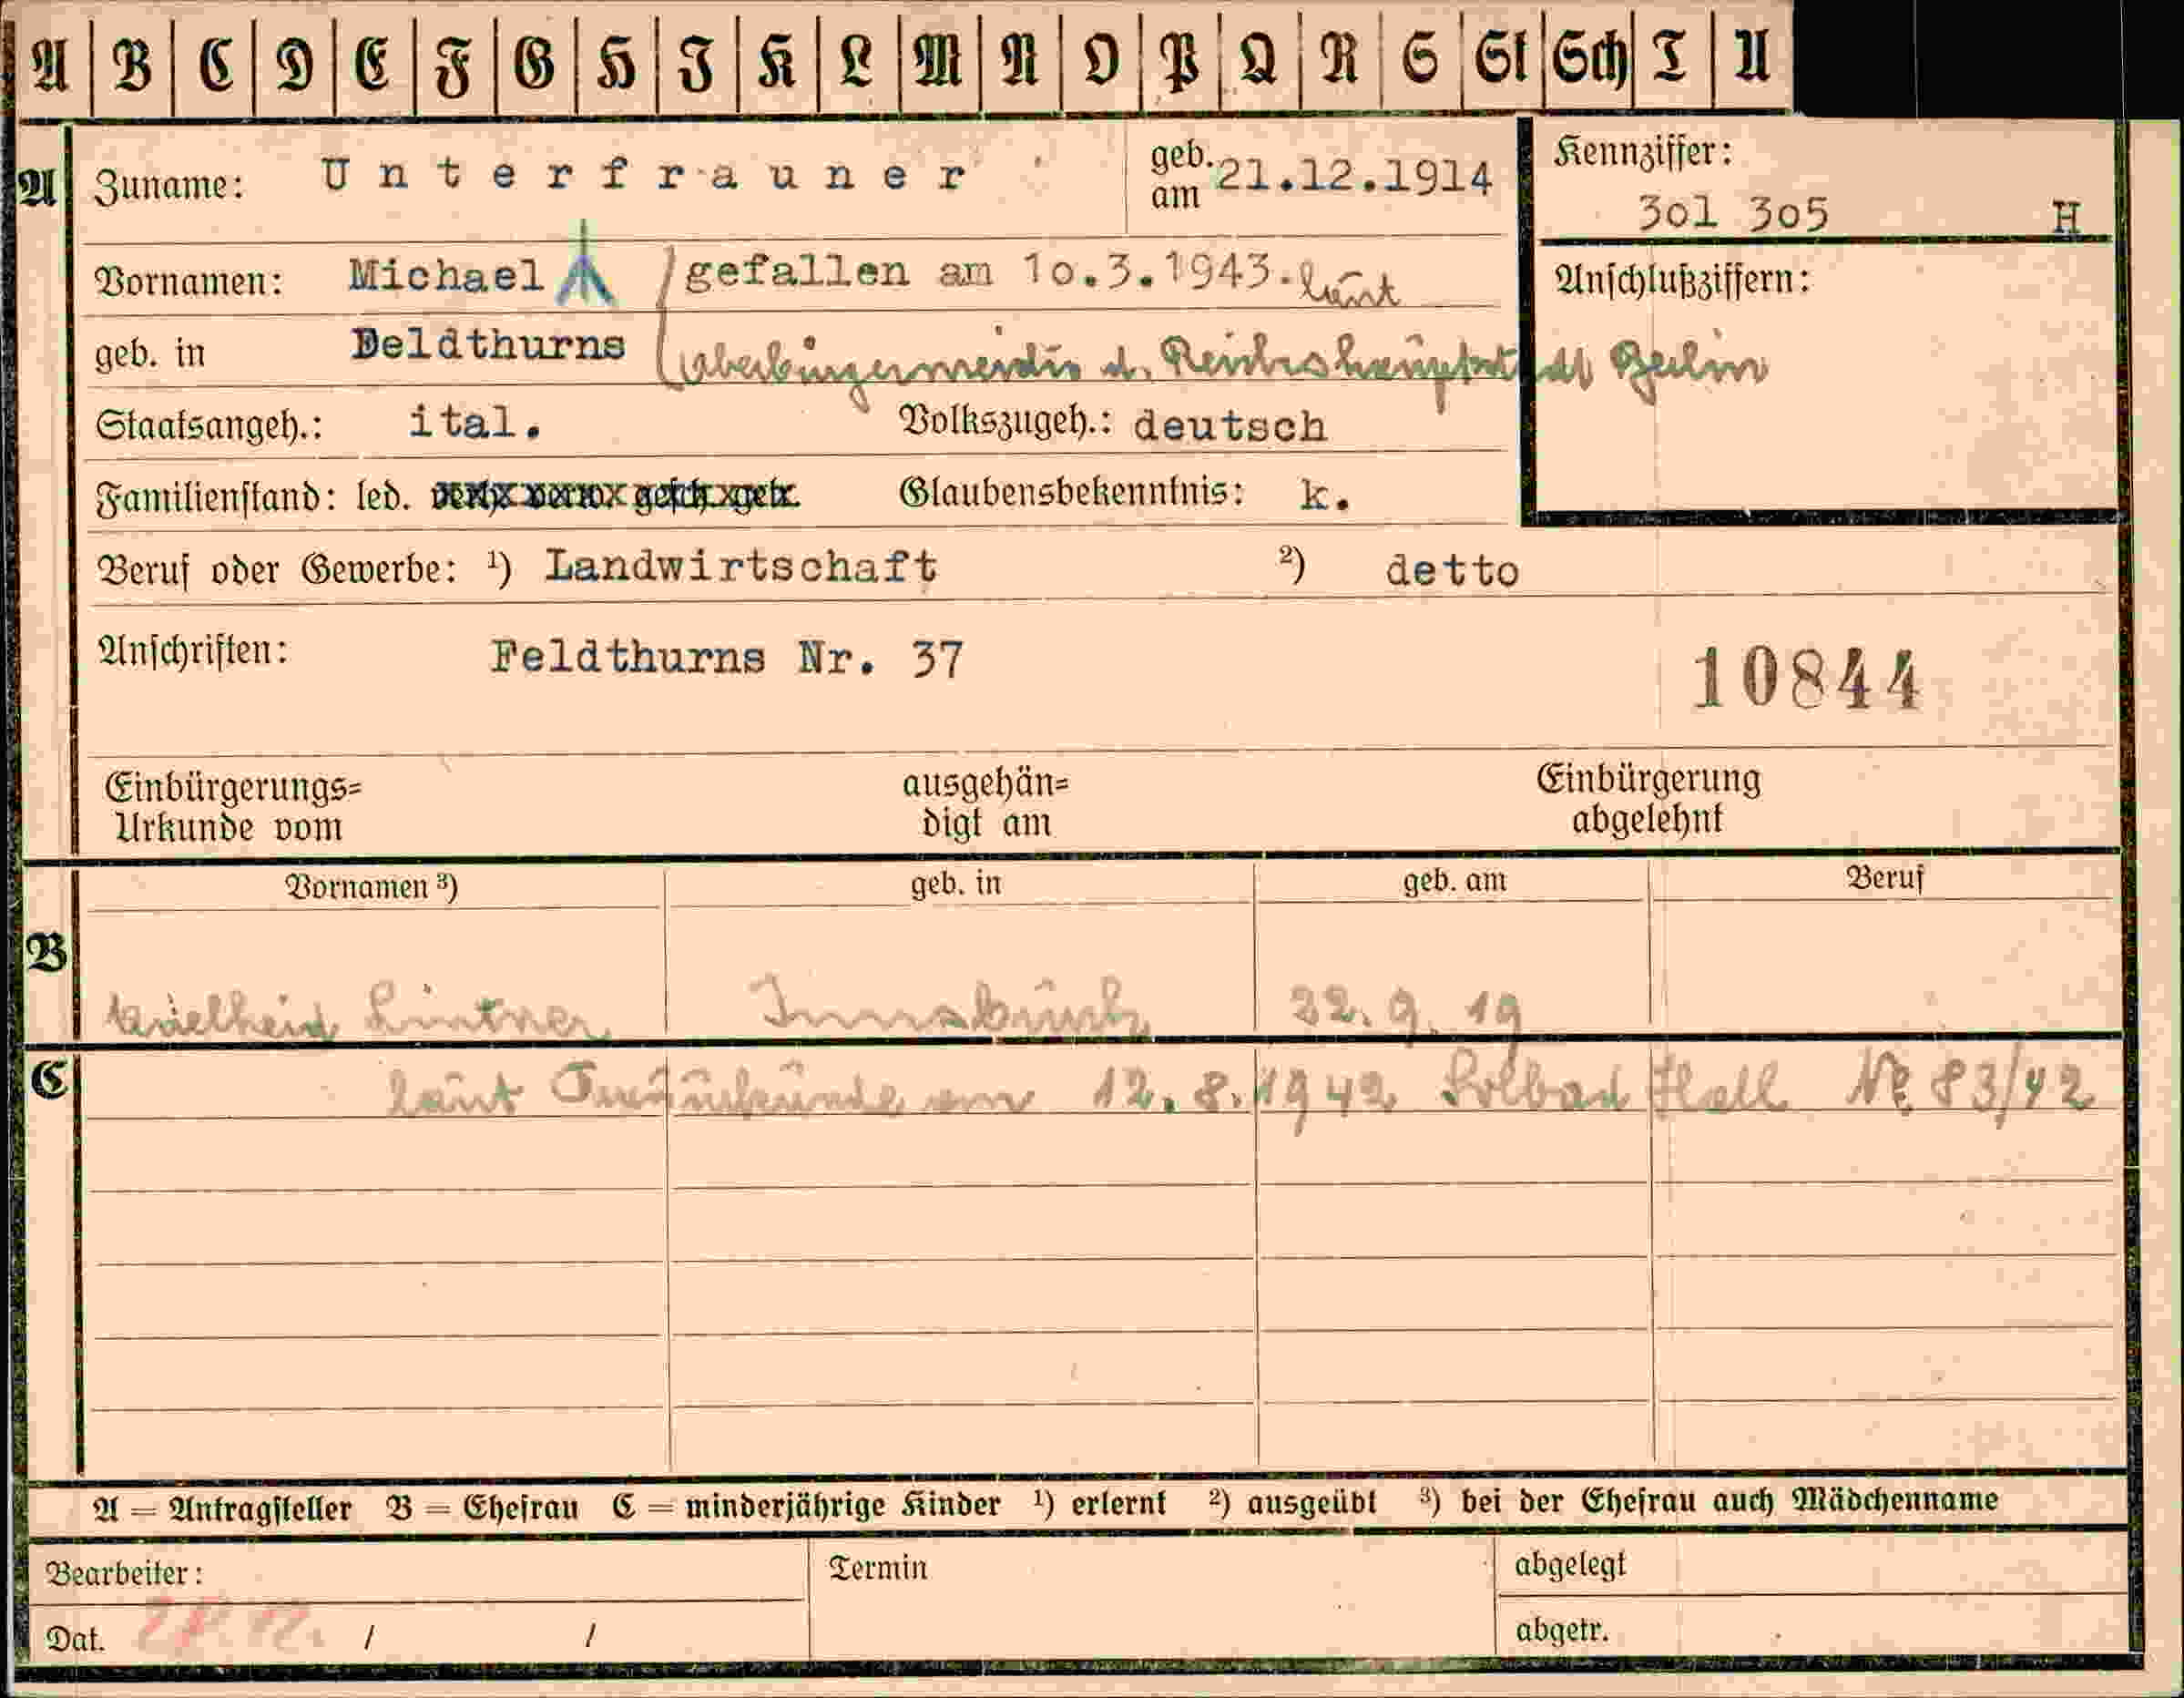 A B C D E F G H I K L M N O P Q R S St Sch T U
A Zuname: Unterfrauner geb. am 21.12.1914
Kennziffer: 3o1 3o5 H
Vornamen: Michael gefallen am 1o.3.1943. laut
Anschlußziffern:
geb. in Deldthurns Oberbürgermeister d. Reichshauptstadt Berlin
Staatsangeh.: ital. Volkszugeh.: deutsch
Familienstand: led. verh. verw. gesch. getr. Glaubensbekenntnis: k.
Beruf oder Gewerbe: ¹) Landwirtschaft ²) detto
Anschriften: Feldthurns Nr. 37
10844
Einbürgerungs= ausgehän= Einbürgerung
Urkunde vom digt am abgelehnt
Vornamen ³) geb. in geb. am Beruf
B
Lintner Innsbruck 22.9.19
C
laut Trauurkunde vom 12.8.1942 Solbad Hall № 83/42
A = Antragsteller B = Ehefrau C = minderjährige Kinder ¹) erlernt ²) ausgeübt ³) bei der Ehefrau auch Mädchenname
Bearbeiter: Termin abgelegt
Dat. / / abgetr.